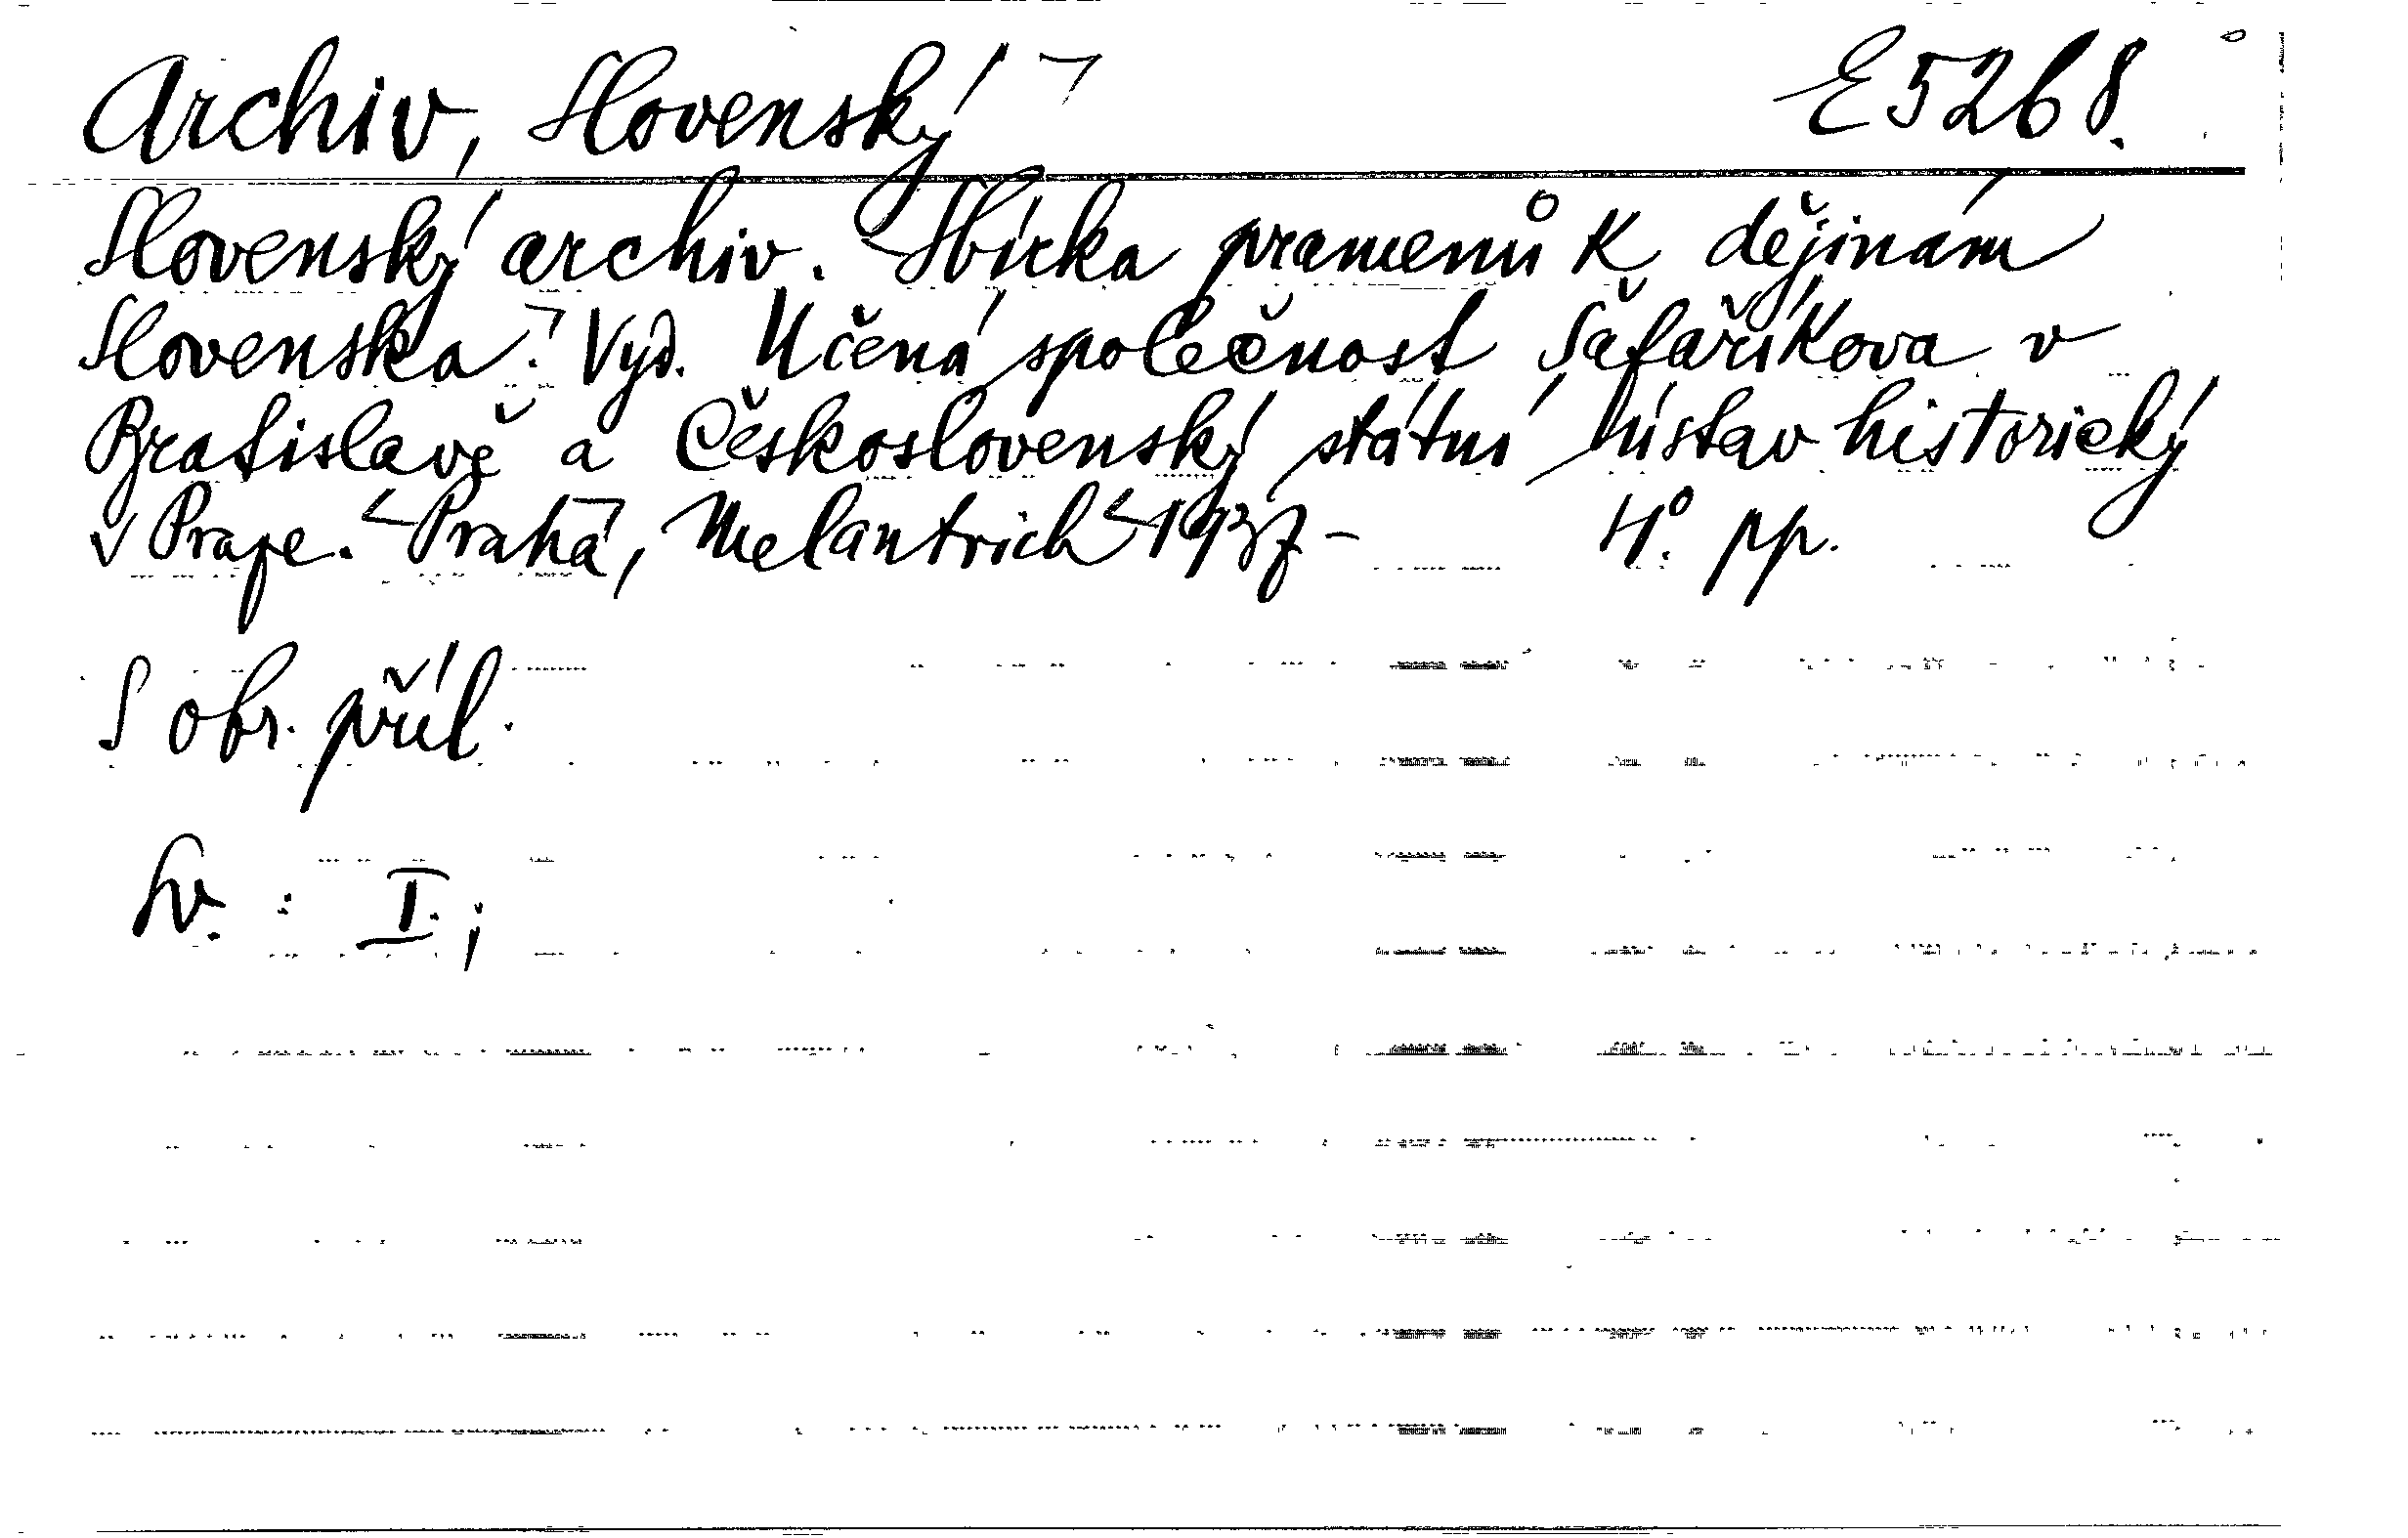 Archiv, Slovenský E 5268.
Slovenský archiv. Sbírka pramenů k dějinám
Slovenska. Vyd. Učená společnost Šafaříkova v
Bratislavě a Československý státní ústav historický
v Praze. Praha, Melantrich 1937- 4°. pp.
S obr. příl.
Sv. : I.;